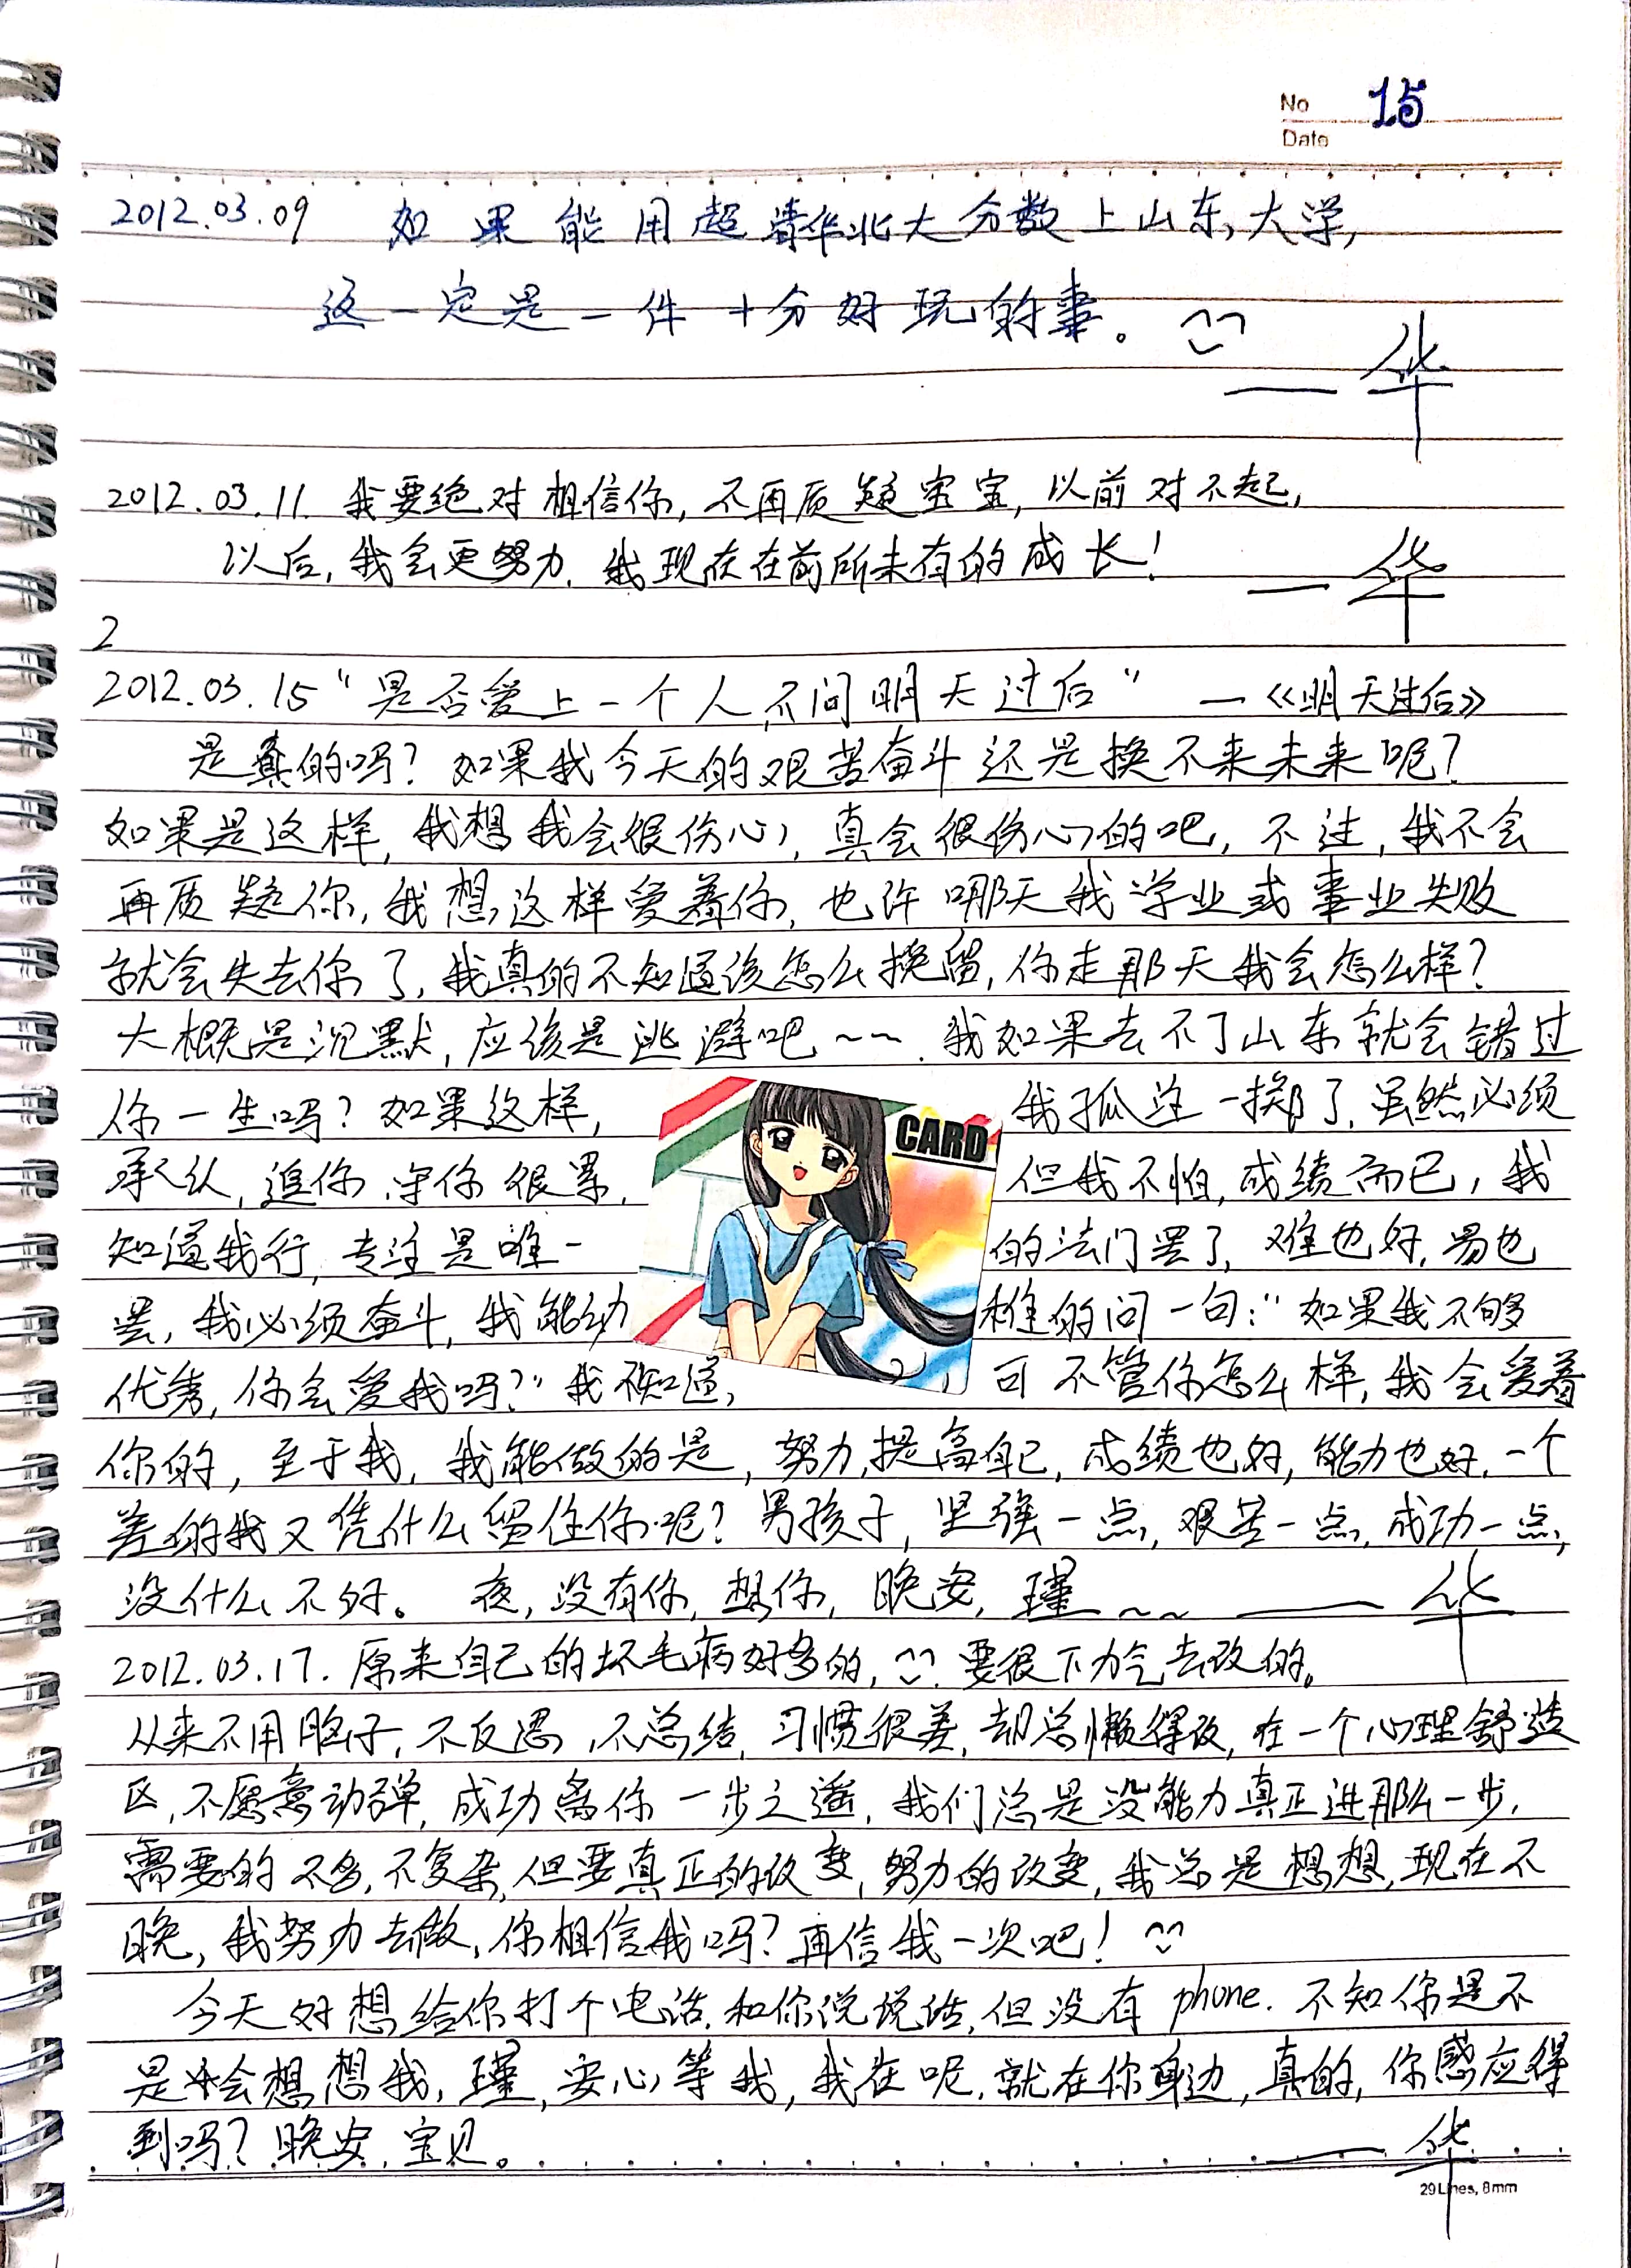 No 15
Date
2012.03.09 如果能用超清华北大分数上山东大学,
这一定是一件十分好玩的事。
— 华
2012.03.11. 我要绝对相信你, 不再质疑宝宝, 以前对不起,
以后, 我会更努力. 我现在在前所未有的成长!
— 华
2
2012.03.15 “是否爱上一个人不问明天过后” —《明天过后》
是真的吗? 如果我今天的艰苦奋斗还是换不来未来呢?
如果是这样, 我想我会很伤心, 真会很伤心的吧, 不过, 我不会
再质疑你, 我想这样爱着你, 也许哪天我学业或事业失败
就会失去你了, 我真的不知道该怎么挽留, 你走那天我会怎么样?
大概是沉默, 应该是逃避吧~~. 我如果去不了山东就会错过
你一生吗? 如果这样, 我孤注一掷了, 虽然必须
承认, 追你, 守你很累, 但我不怕, 成绩而已, 我
知道我行, 专注是唯一的法门罢了, 难也好, 易也
罢, 我必须奋斗, 我能幼 CARD 稚的问一句: “如果我不够
优秀, 你会爱我吗?” 我不知道, 可不管你怎么样, 我会爱着
你的, 至于我, 我能做的是, 努力, 提高自己, 成绩也好, 能力也好, 一个
差的我又凭什么留住你呢? 男孩子, 坚强一点, 艰苦一点, 成功一点,
没什么不好。 夜, 没有你, 想你, 晚安, 瑾~~ — 华
2012.03.17. 原来自己的坏毛病好多的, 要很下力气去改的。
从来不用脑子, 不反思, 不总结, 习惯很差, 却总懒得改, 在一个心理舒适
区, 不愿意动弹, 成功离你一步之遥, 我们总是没能力真正进那么一步,
需要的不多, 不复杂, 但要真正的改变, 努力的改变, 我总是想想, 现在不
晚, 我努力去做, 你相信我吗? 再信我一次吧!
今天好想给你打个电话, 和你说说话, 但没有 phone. 不知你是不
是会想想我, 瑾, 安心等我, 我在呢, 就在你身边, 真的, 你感应得
到吗? 晚安, 宝贝。 — 华
29Lines, 8mm